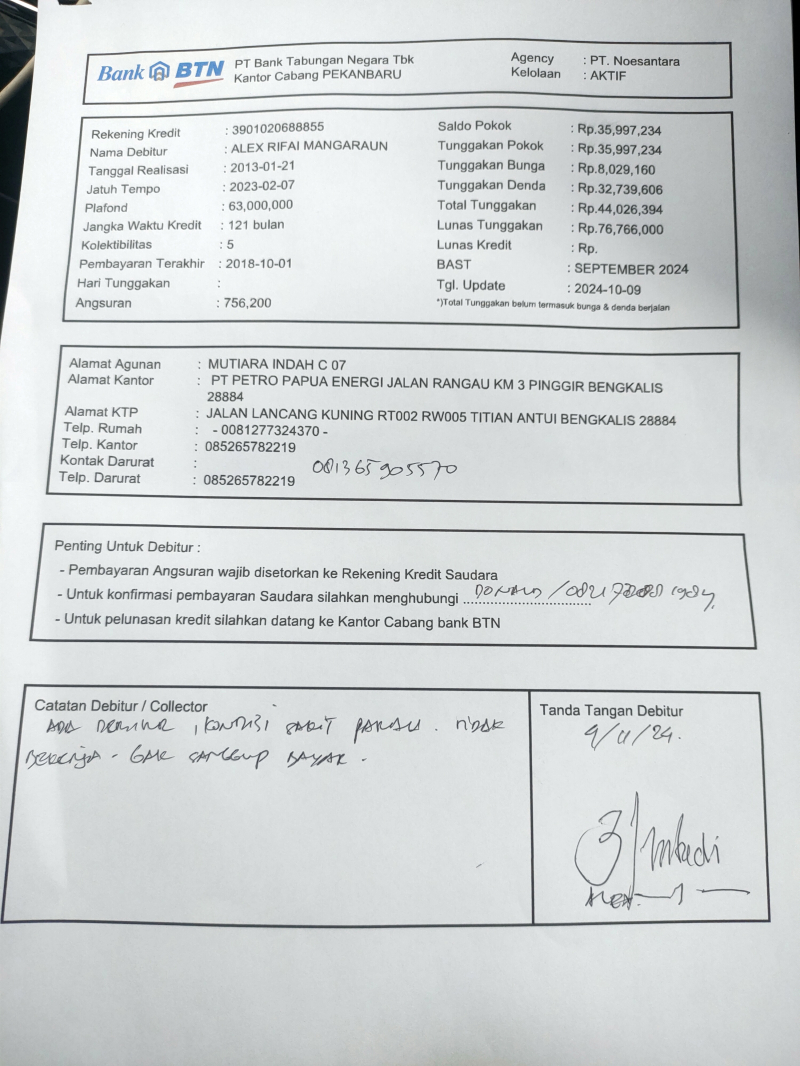 Bank BTN PT Bank Tabungan Negara Tbk Agency : PT. Noesantara
Kantor Cabang PEKANBARU Kelolaan : AKTIF
Rekening Kredit : 3901020688855 Saldo Pokok : Rp.35,997,234
Nama Debitur : ALEX RIFAI MANGARAUN Tunggakan Pokok : Rp.35,997,234
Tanggal Realisasi : 2013-01-21 Tunggakan Bunga : Rp.8,029,160
Jatuh Tempo : 2023-02-07 Tunggakan Denda : Rp.32,739,606
Plafond : 63,000,000 Total Tunggakan : Rp.44,026,394
Jangka Waktu Kredit : 121 bulan Lunas Tunggakan : Rp.76,766,000
Kolektibilitas : 5 Lunas Kredit : Rp.
Pembayaran Terakhir : 2018-10-01 BAST : SEPTEMBER 2024
Hari Tunggakan : Tgl. Update : 2024-10-09
Angsuran : 756,200 *)Total Tunggakan belum termasuk bunga & denda berjalan
Alamat Agunan : MUTIARA INDAH C 07
Alamat Kantor : PT PETRO PAPUA ENERGI JALAN RANGAU KM 3 PINGGIR BENGKALIS
28884
Alamat KTP : JALAN LANCANG KUNING RT002 RW005 TITIAN ANTUI BENGKALIS 28884
Telp. Rumah : - 0081277324370 -
Telp. Kantor : 085265782219
Kontak Darurat : 081365905570
Telp. Darurat : 085265782219
Penting Untuk Debitur :
- Pembayaran Angsuran wajib disetorkan ke Rekening Kredit Saudara
- Untuk konfirmasi pembayaran Saudara silahkan menghubungi DONALD
- Untuk pelunasan kredit silahkan datang ke Kantor Cabang bank BTN
Catatan Debitur / Collector Tanda Tangan Debitur
ADA DEBITUR, KONDISI SAKIT PARAH. TIDAK 9/11/24.
BEKERJA - GAK SANGGUP BAYAR.